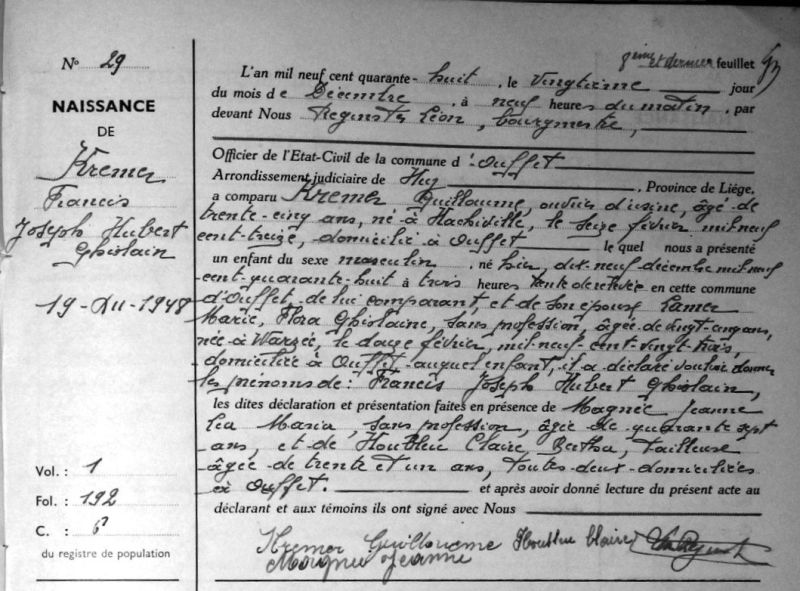 8ème et dernier feuillet
N° 29
NAISSANCE
DE
Kremer
Francis
Joseph Hubert
Ghislain
19-XII-1948
Vol. : 1
Fol. : 192
C. :
du registre de population
L'an mil neuf cent quarante-huit, le vingtième jour
du mois de Décembre, à neuf heures du matin, par
devant Nous Reginster Léon, bourgmestre,
Officier de l'Etat-Civil de la commune d'Ouffet
Arrondissement judiciaire de Huy, Province de Liége,
a comparu Kremer Guillaume, ouvrier d'usine, âgé de
trente-cinq ans, né à Hachiville, le seize février mil neuf
cent-treize, domicilié à Ouffet le quel nous a présenté
un enfant du sexe masculin, né hier, dix-neuf décembre mil neuf
cent-quarante-huit à trois heures trente de relevée en cette commune
d'Ouffet, de lui comparant, et de son épouse Lamer
Marie, Flora Ghislaine, sans profession, âgée de vingt-cinq ans,
née à Warzée, le douze février, mil neuf cent-vingt-trois,
domiciliée à Ouffet auquel enfant, il a déclaré vouloir donner
les prénoms de : Francis Joseph Hubert Ghislain,
les dites déclaration et présentation faites en présence de Magnée Jeanne
Léa Maria, sans profession, âgée de quarante sept
ans, et de Houbleu Claire, Bertha, tailleuse
âgée de trente et un ans, toutes deux domiciliées
à Ouffet. et après avoir donné lecture du présent acte au
déclarant et aux témoins ils ont signé avec Nous
Kremer Guillaume Claire
Jeanne